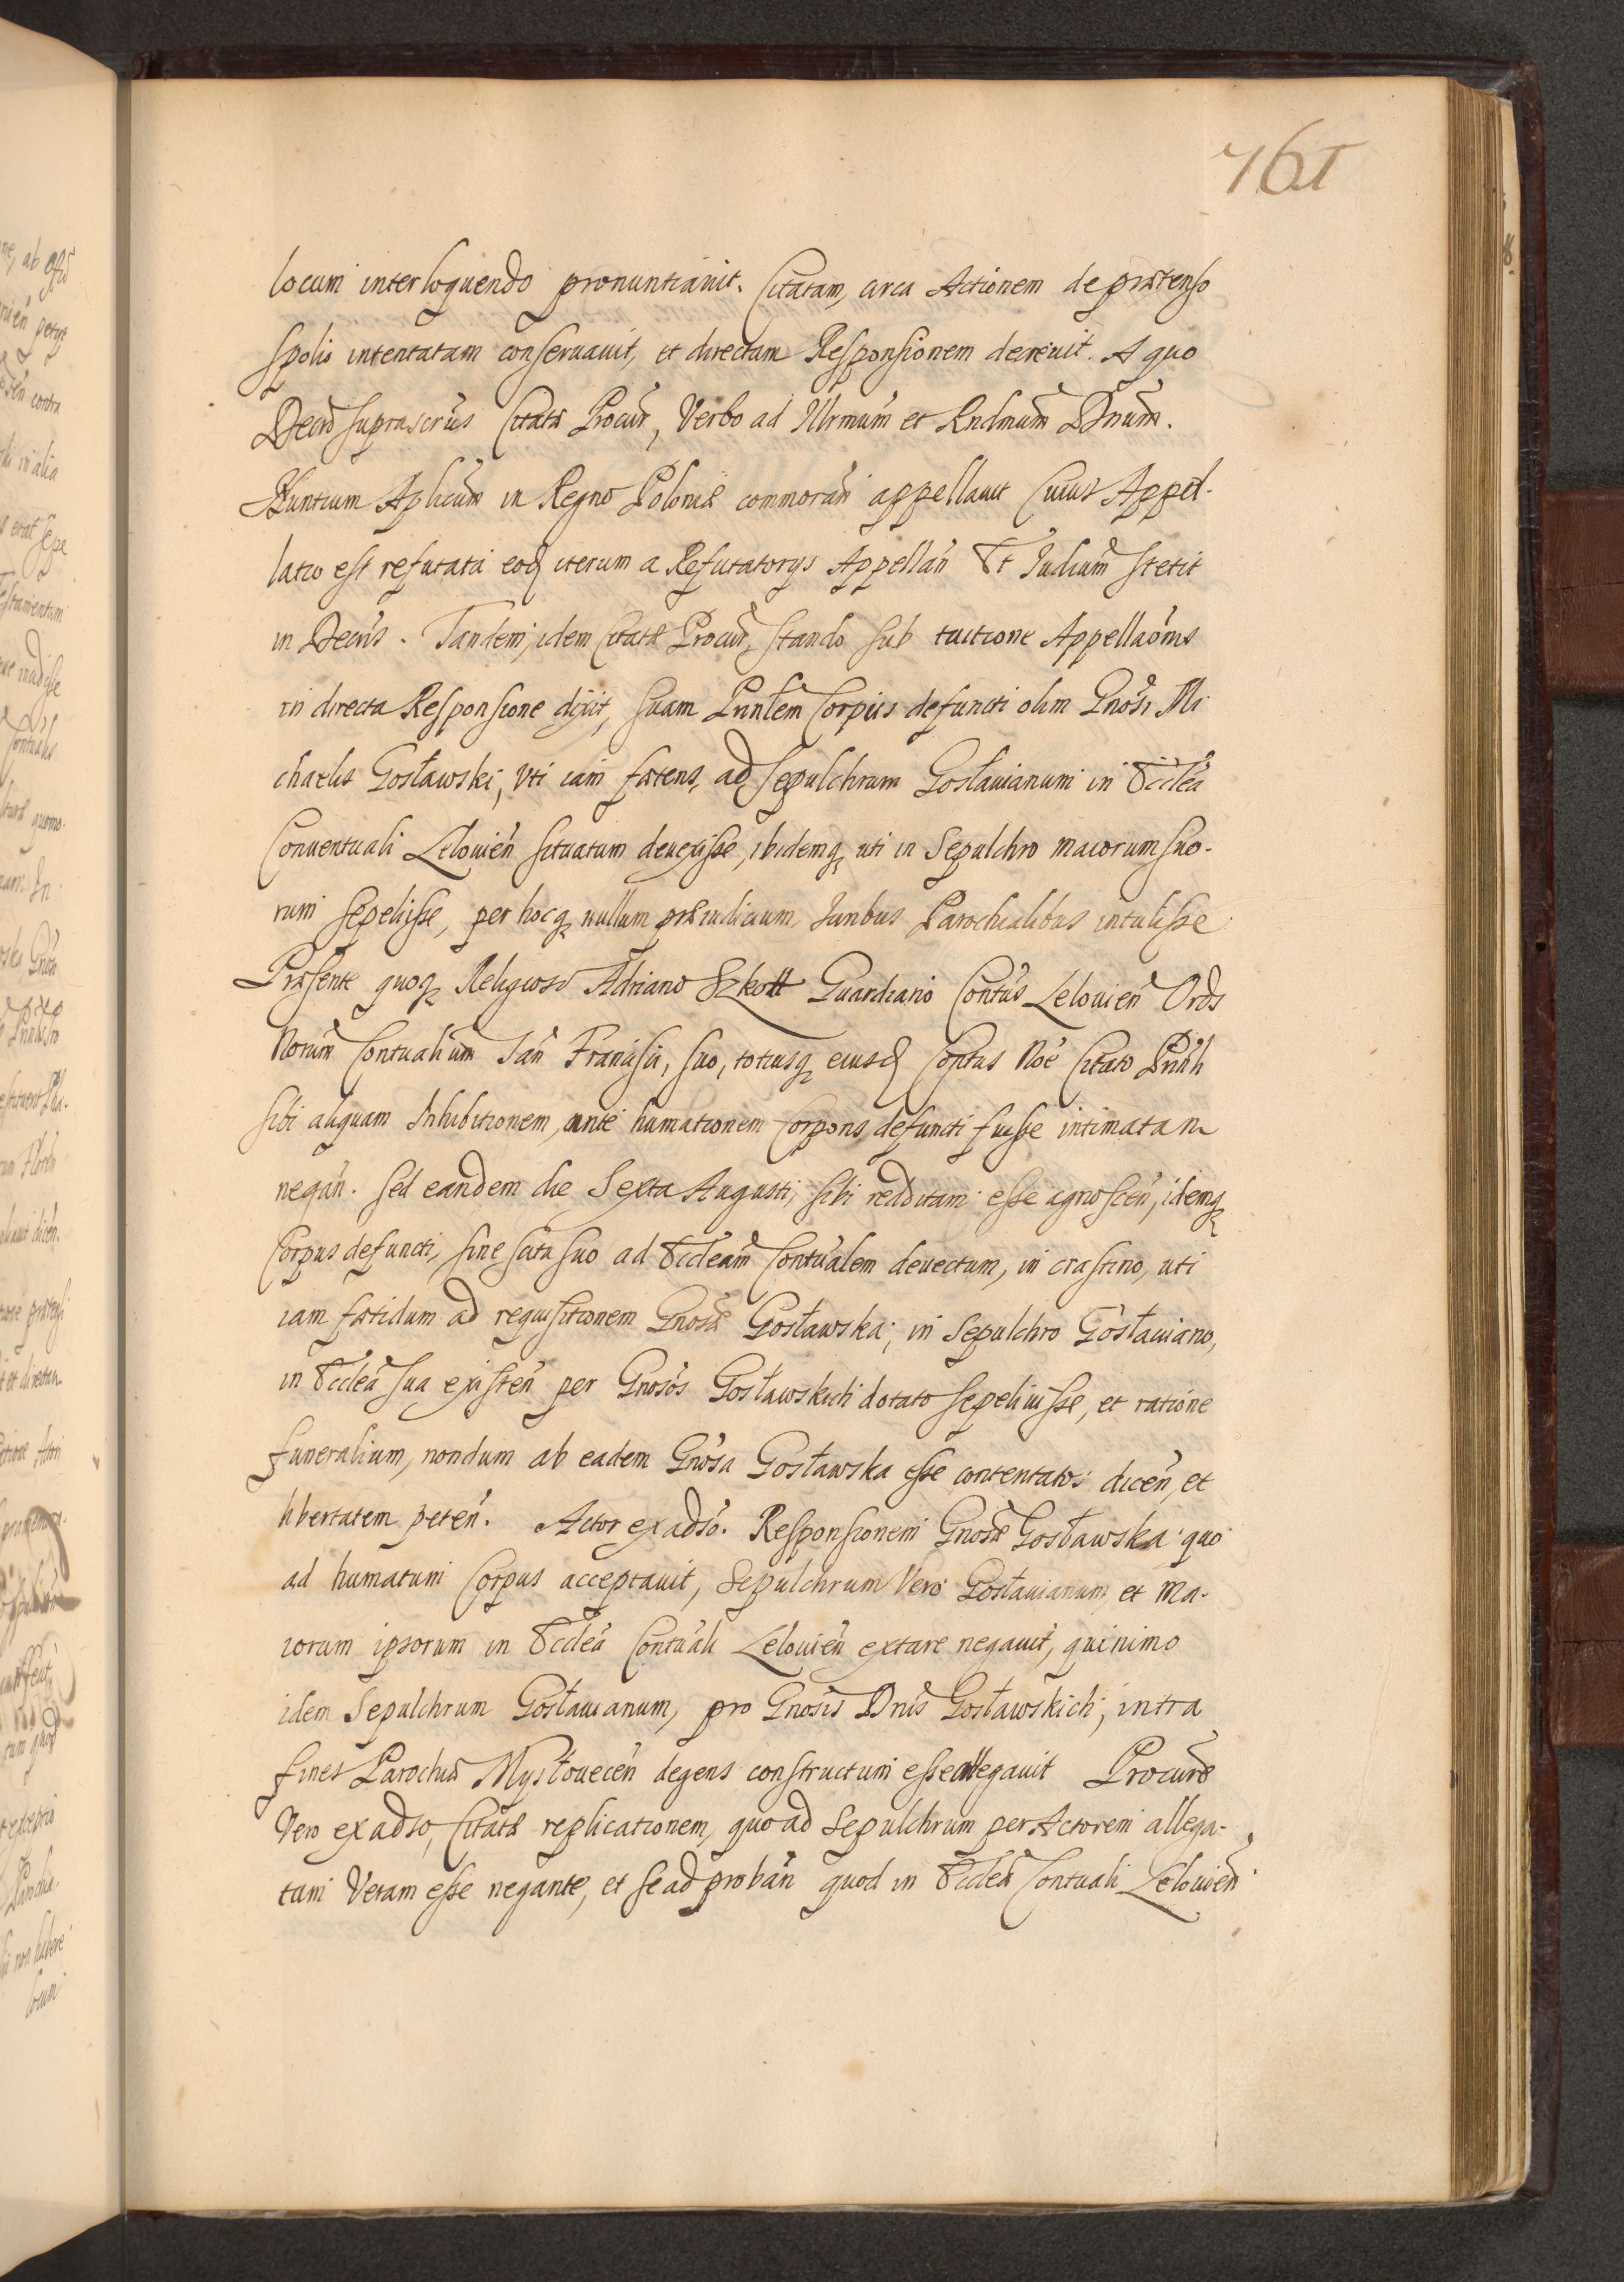 761
locum interloquendo pronuntiauit. Citatam, circa Actionem de prætenso
spolio intentatam conseruauit, et directam Responsionem decreuit. A quo
Decrō suprascrīus Citatæ Procur̄, Verbo ad Illrmum̄ et Rndmum̄ Dnum̄.
Nuntium Aplicum̄ in Regno Poloniæ commorān appellauit Cuius Appel-
latio est refutata eoq̨ iterum a Refutatorijs Appellān Et Iudicium̄ stetit
in Decrīs. Tandem, idem Citatæ Procur̄, stando sub tuitione Appellaōnis
in directa Responsione dixit, suam Prīnlem Corpus defuncti olim Gnōsi Mi
chaelis Gosławski, vti iam fætens, ad sepulchrum Gosławianum in Ecclēa
Conuentuali Lelouiēn situatum deuexisse, ibidemq̨ uti in Sepulchro maiorum suo-
rum sepeliisse, per hocq̨ nullum præiudicium, Iuribus Parochialibus intulisse
Præsente quoq̨ Religioso Adriano Szkott Guardiano Contūs Lelouiēn Ords
Norum̄ Contualium Sān Francisci, suo, totiusq̨ eiusd̨ Contus Noē Citato Prīnli
sibi aliquam Inhibitionem, ante humationem Corporis defuncti fuisse intimatam
negān. sed eandem die Sexta Augusti, sibi redditam esse agnoscēn, idemq̨
Corpus defuncti, sine scitu suo ad Ecclēam Contūalem deuectum, in crastino, uti
iam fætidum ad requisitionem Gnosæ Gosławska, in Sepulchro Gosławiano,
in Ecclēa sua existēn per Gnosōs Gosławskich dotato sepeliuisse, et ratione
funeralium, nondum ab eadem Gnōsa Gosławska esse contentatos dicēn, et
libertatem petēn. Actor ex adsō. Responsionem Gnosæ Gosławska quo
ad humatum Corpus acceptauit, Sepulchrum Vero Gosławianum, et Ma-
iorum ipsorum in Ecclēa Contūali Lelouiēn extare negauit, quinimo
idem Sepulchrum Gosławianum, pro Gnosis Dnis Gosławskich, intra
fines Parochiæ Mysłouecēn degens constructum esse allegauit Procurē
Vero ex adso, Citatæ replicationem, quoad Sepulchrum per Actorem allega-
tam Veram esse negante, et se ad probān quod in Ecclēa Contuali Lelouiēn